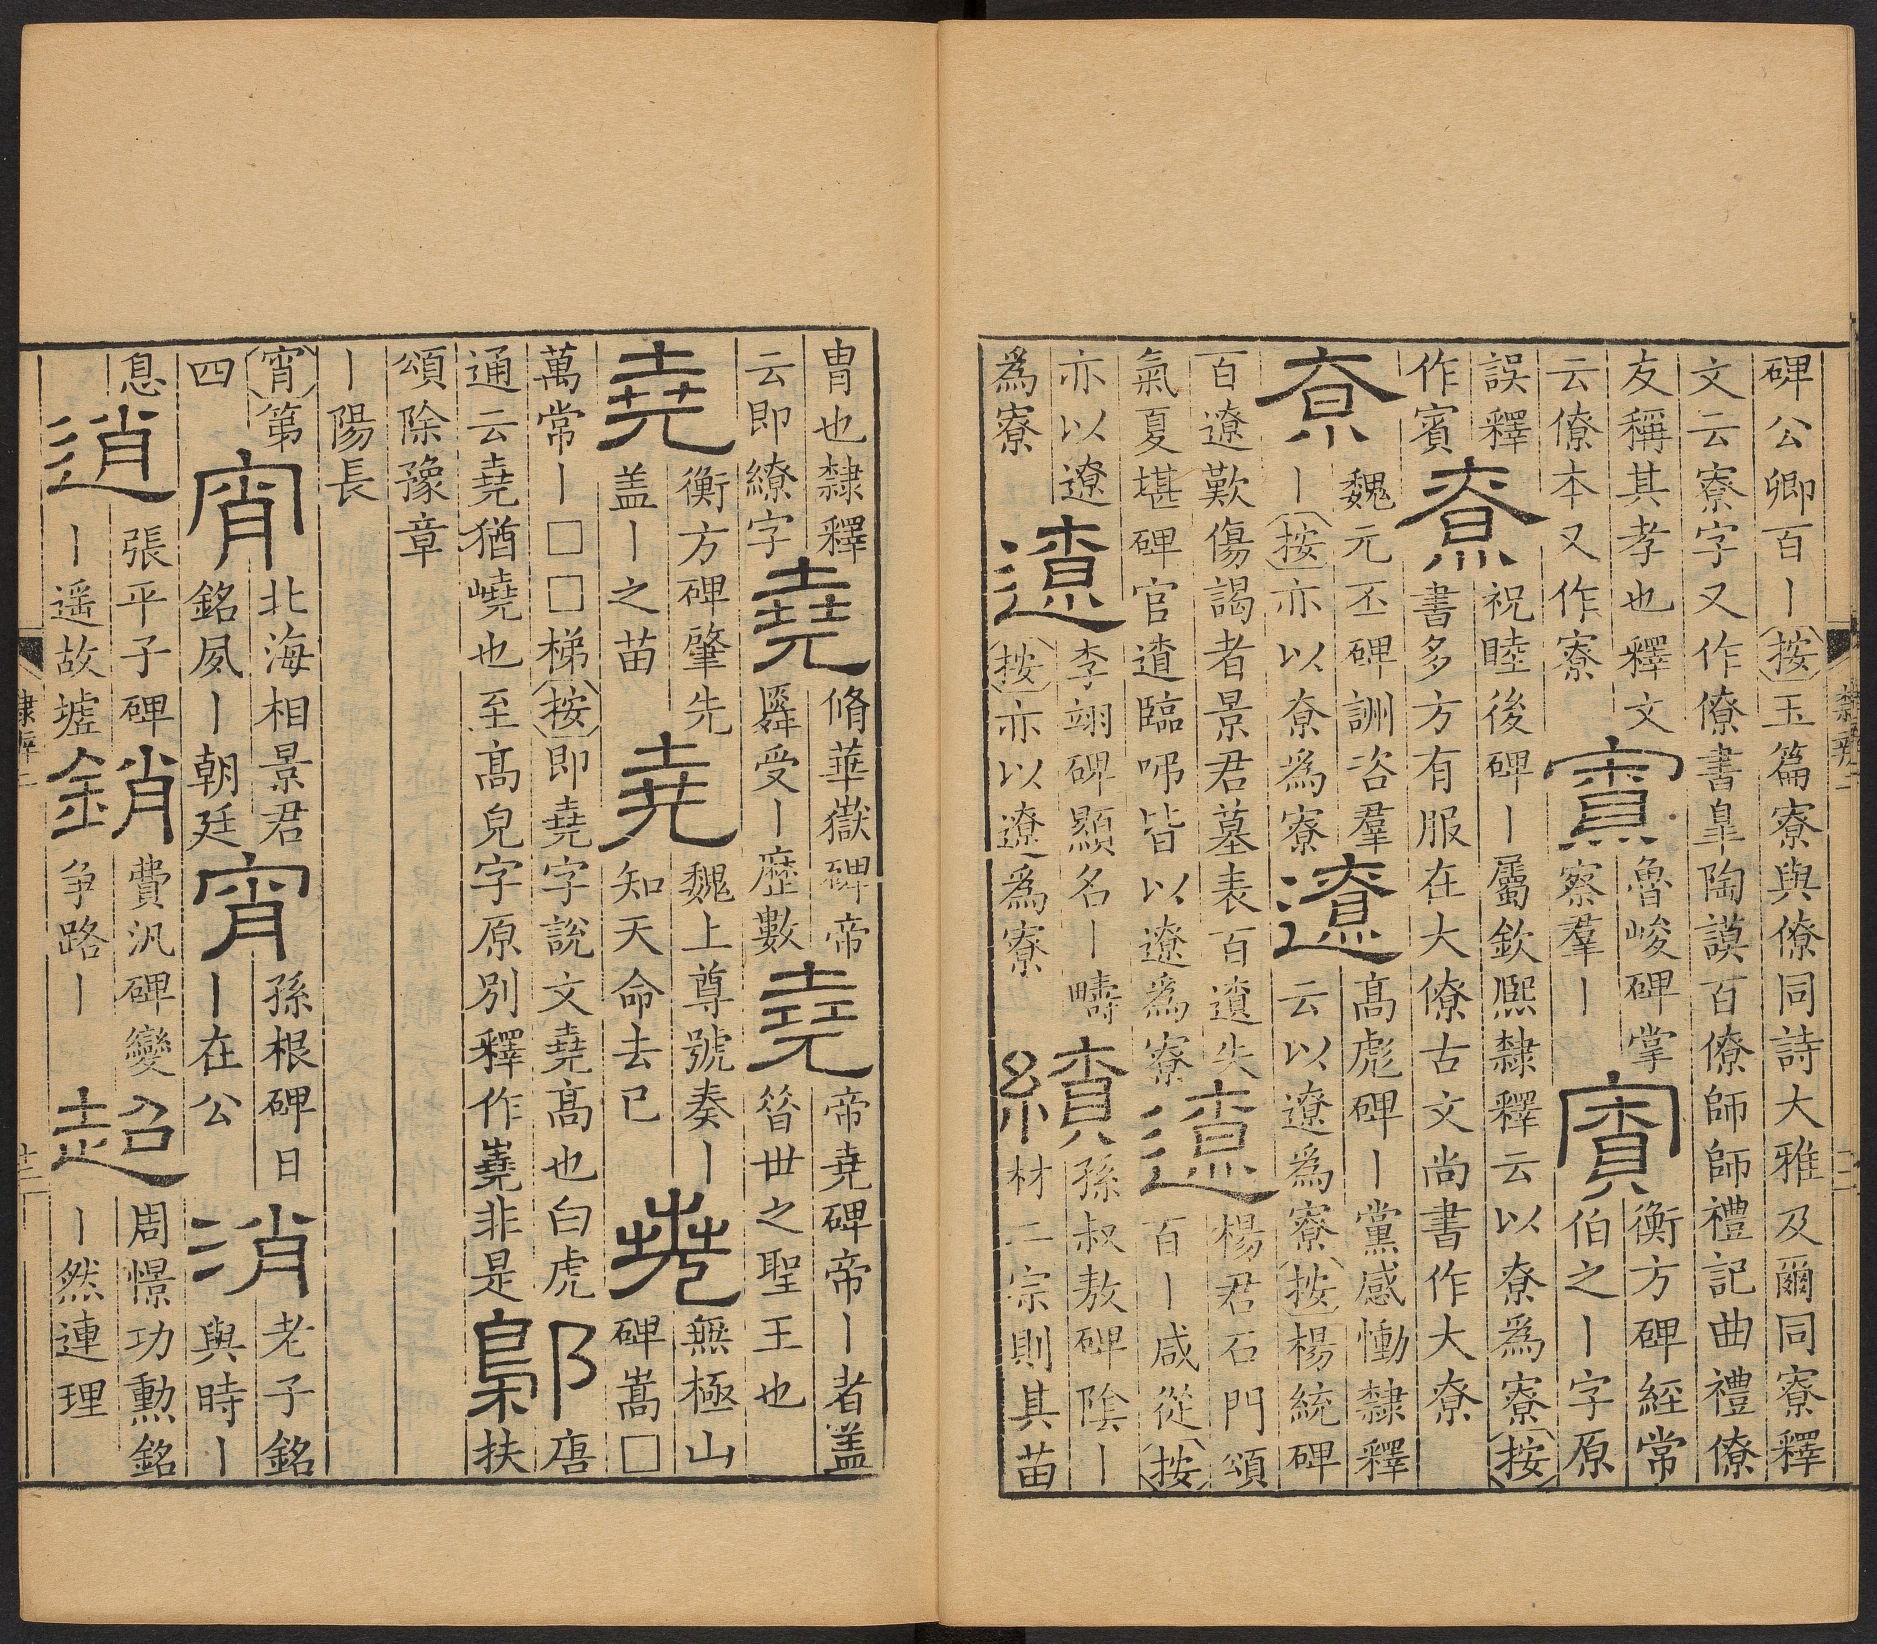 碑公卿百丨按玉篇寮與僚同詩大雅及爾同寮釋
文云寮字又作僚書臯陶謨百僚師師禮記曲禮僚
友稱其孝也釋文
云僚本又作寮
寮
魯峻碑掌
察羣丨
賓
衡方碑經常
伯之丨字原
誤釋
作賓
尞
祝睦後碑丨屬欽熙隸釋云以尞爲寮按
書多方有服在大僚古文尚書作大尞
尞
魏元丕碑詶咨羣
丨按亦以尞爲寮
遼
高彪碑丨黨感慟隸釋
云以遼爲寮按楊統碑
百遼歎傷謁者景君墓表百遼失
氣夏堪碑官遼臨吊皆以遼爲寮
遼
楊君石門頌
百丨咸從按
亦以遼
爲寮
遼
李翊碑顯名丨疇
按亦以遼爲寮
繚
孫叔敖碑陰丨
材二宗則其苗
胄也隸釋
云即繚字
堯
脩華嶽碑帝
舜受丨歷數
堯
帝堯碑帝丨者盖
昔世之聖王也
堯
衡方碑肇先
盖丨之苗
堯
魏上尊號奏丨
知天命去已
堯
無極山
碑嵩□
萬常丨□□梯按即堯字說文堯高也白虎
通云堯猶嶢也至高皃字原別釋作嶤非是
鄡
唐
扶
頌除豫章
丨陽長
宵第
四
宵
北海相景君
銘夙丨朝廷
宵
孫根碑日
丨在公
消
老子銘
與時丨
息
逍
張平子碑
丨遥故墟
銷
費汎碑變
爭路丨
超
周憬功勳銘
丨然連理
隸辨二